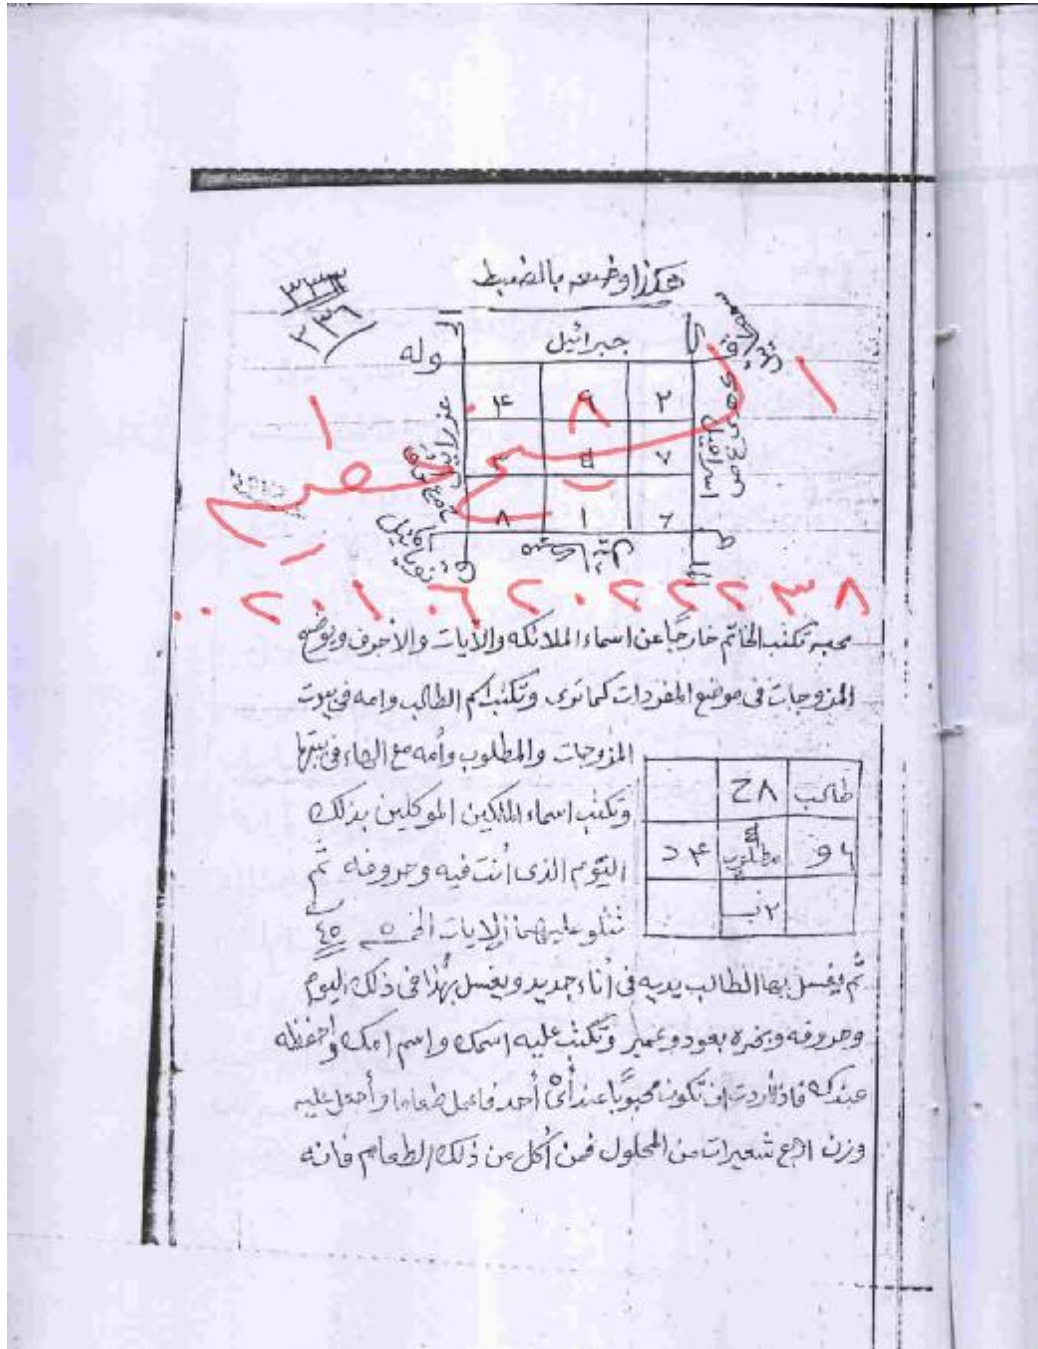 هكذا وضعه بالضبط
٣٣٣
٢٣٦
جبرائيل
وله
٢ ٩ ٤
٧ ٥ ٣
٦ ١ ٨
اسرافيل
٠٠٢٠١٠٦٢٠٢٢٢٣٨
محبه تكتب الخاتم خارجًا عن اسماء الملائكه والآيات والأحرف ويوضع
المزوجات فى موضع المفردات كما ترى وتكتب اسم الطالب وامه فى بيوت
المزوجات والمطلوب وأمه مع الهاء فى بيتها
وتكتب اسماء الملكين الموكلين بذلك
اليوم الذى أنت فيه وحروفه ثم
تتلو عليهما الآيات الخمسه ٤٥
طالب ٨ح
٦و مطلوب ٤د
٢ب
ثم يغسل بها الطالب يديه فى أناء جديد ويغسل بهذا فى ذلك اليوم
وحروفه وبخره بعود وعمبر وتكتب عليه اسمك واسم امك وأحفظه
عندك فاذا أردت ان تكون محبوبًا عند أىّ أحد فاعمل طعاما وأجعل عليه
وزن اربع شعيرات من المحلول فمن أكل من ذلك الطعام فانه